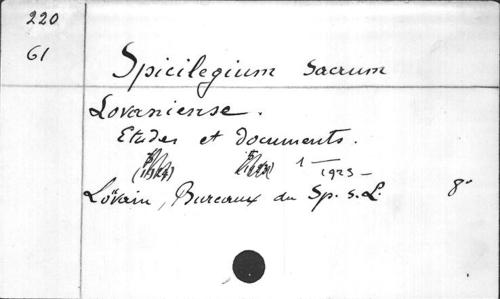 220
61
Spicilegium Sacrum
Lovaniense.
Etudes et documents.
1 — 1923 –
Lovain, Bureaux du Sp. s. L. 8°